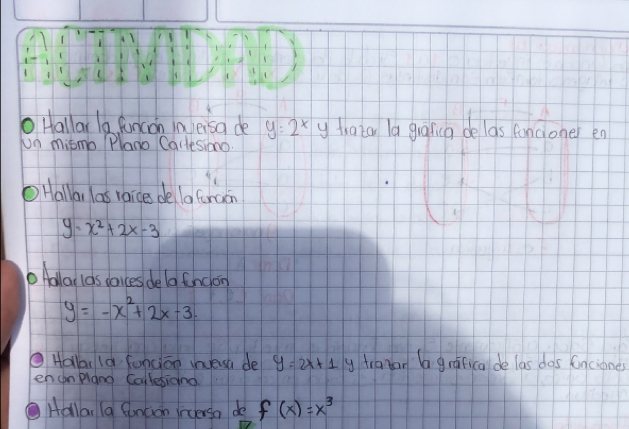 ACTIVIDAD
Hallar la función inversa de y = 2ˣ y trazar la gráfica de las funciones en
un mismo Plano Cartesiano.
Hallar las raíces de la función
y = x² + 2x - 3
Hallar las raíces de la función
y = -x² + 2x - 3.
Hallar la función inversa de y = 2x + 1 y trazar la gráfica de las dos funciones
en un Plano Cartesiano
Hallar la función inversa de f (x) = x³